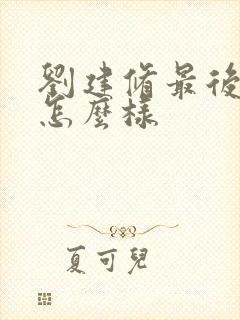 劉建脩最後
怎麼樣
夏可兒